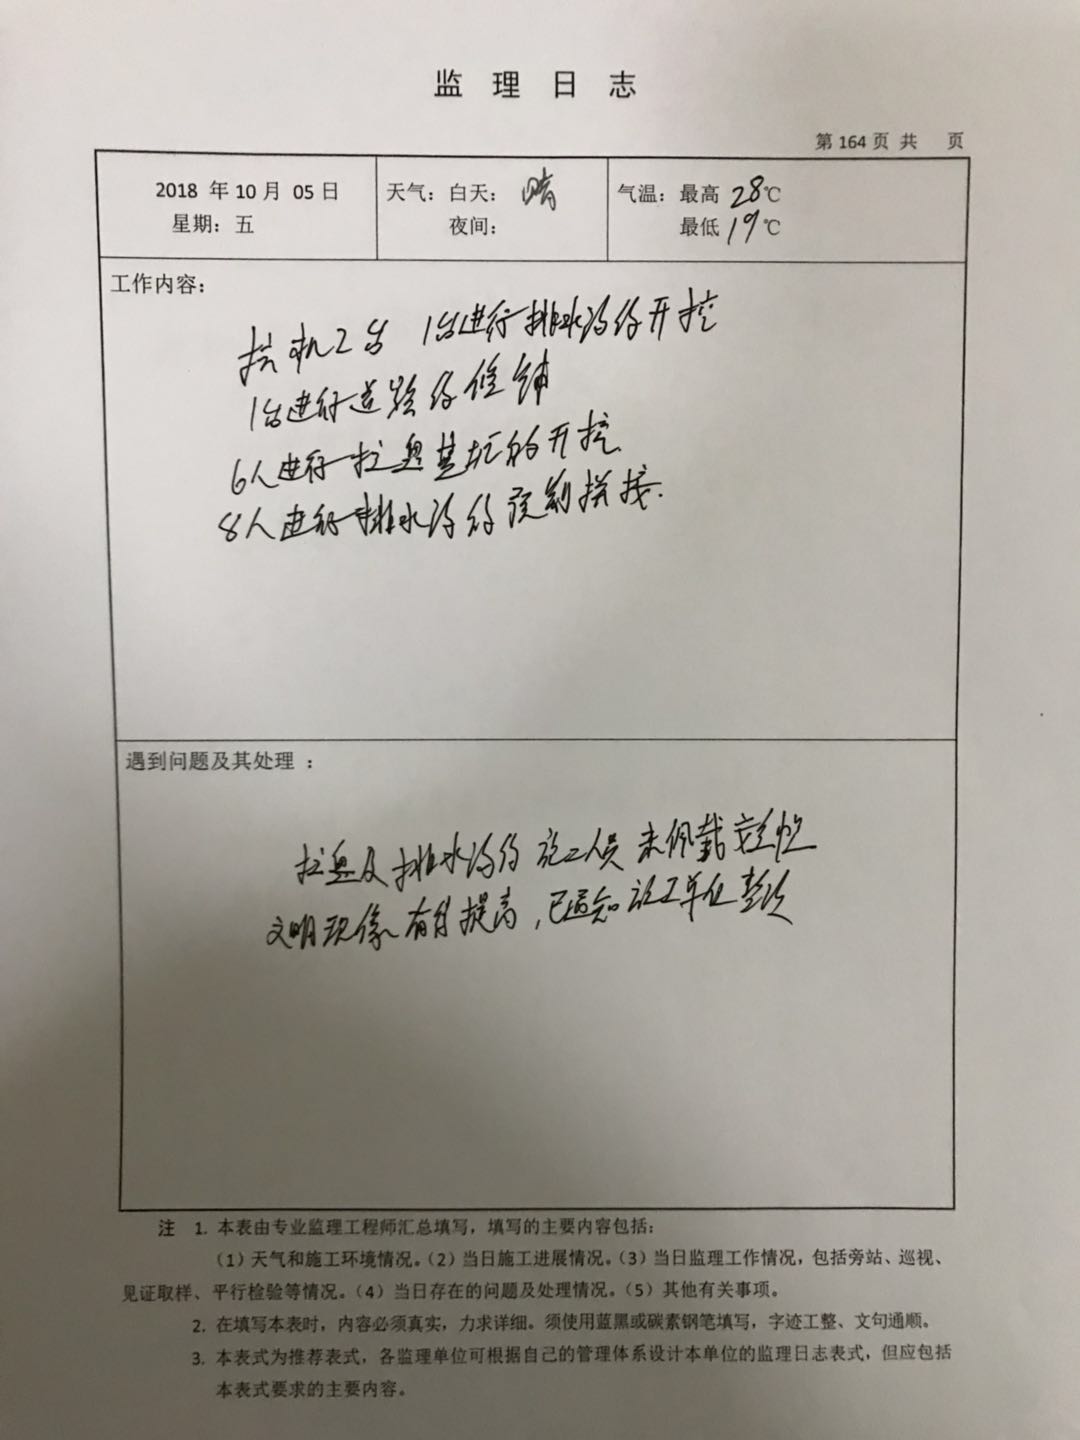 监 理 日 志
第 164 页 共 页
2018 年 10 月 05 日
星期：五
天气：白天：晴
夜间：
气温：最高 28℃
最低 19℃
工作内容：
挖机2台 1台进行排水沟的开挖
1台进行道路的修铺
6人进行拉盘基坑的开挖.
8人进行排水沟的模制拼接.
遇到问题及其处理 ：
拉盘及排水沟的施工人员未佩戴安全帽
文明现像有待提高，已通知施工单位整改
注 1. 本表由专业监理工程师汇总填写，填写的主要内容包括：
（1）天气和施工环境情况。（2）当日施工进展情况。（3）当日监理工作情况，包括旁站、巡视、
见证取样、平行检验等情况。（4）当日存在的问题及处理情况。（5）其他有关事项。
2. 在填写本表时，内容必须真实，力求详细。须使用蓝黑或碳素钢笔填写，字迹工整、文句通顺。
3. 本表式为推荐表式，各监理单位可根据自己的管理体系设计本单位的监理日志表式，但应包括
本表式要求的主要内容。